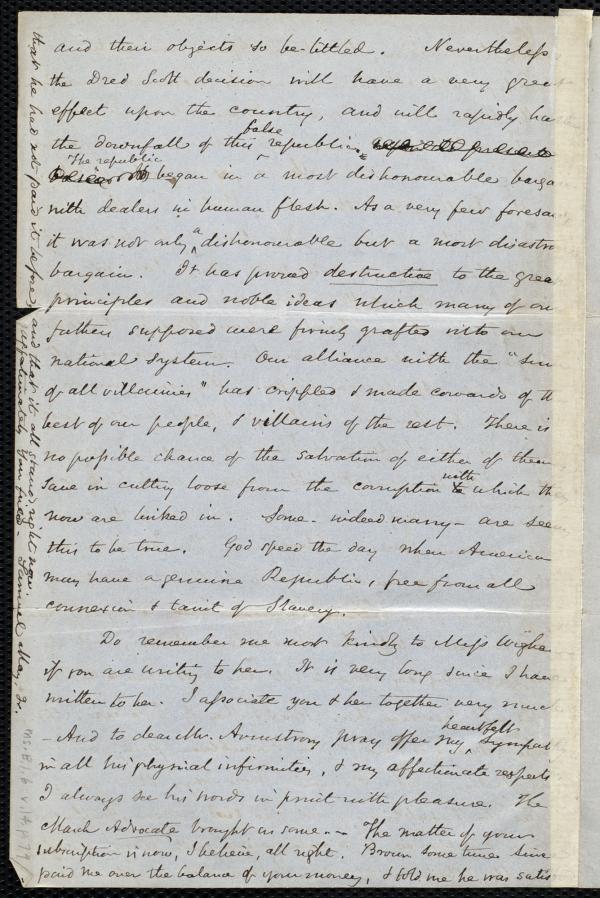 and their objects so be-littled. Nevertheless
the Dred Scott decision will have a very grea
effect upon the country, and will rapidly ha
the downfall of this false republic.
The republic began in a most dishonourable barga
with dealers in human flesh. As a very few foresaw
it was not only a dishonourable but a most disastro
bargain. It has proved destructive to the grea
principles and noble ideas which many of our
fathers supposed were firmly grafted into our
national system. Our alliance with the "sum
of all villainies" has crippled & made cowards of th
best of our people, & villains of the rest. There is
no possible chance of the salvation of either of them
save in cutting loose from the corruption with which th
now are linked in. Some - indeed many - are see
this to be true. God speed the day when America
may have a genuine Republic, free from all
connexion & taint of Slavery.
Do remember me most kindly to Miss Wigha
if you are writing to her. It is very long since I have
written to her. I associate you & her together very much
- And to dear Mr. Armstrong pray offer my heartfelt sympat
in all his physical infirmities, & my affectionate respects
I always see his words in print with pleasure. The
March Advocate brought us some. - The matter of your
subscription is now, I believe, all right. Brown some time since
paid me over the balance of your money, & told me he was satis
that he had not paid it before, and that it all stands right now.
Affectionately your friend - Samuel May, Jr.
Ms. B.1.6 v.14, p.79